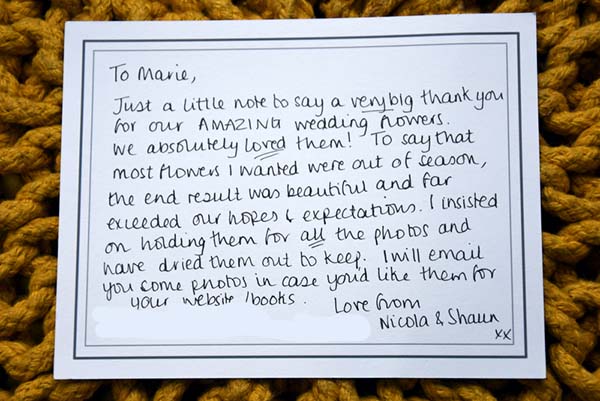 To Marie,
Just a little note to say a very big thank you
for our AMAZING wedding flowers.
We absolutely loved them! To say that
most flowers I wanted were out of season,
the end result was beautiful and far
exceeded our hopes & expectations. I insisted
on holding them for all the photos and
have dried them out to keep. I will email
you come photos in case you'd like them for
your website /books. Love from
Nicola & Shaun
xx